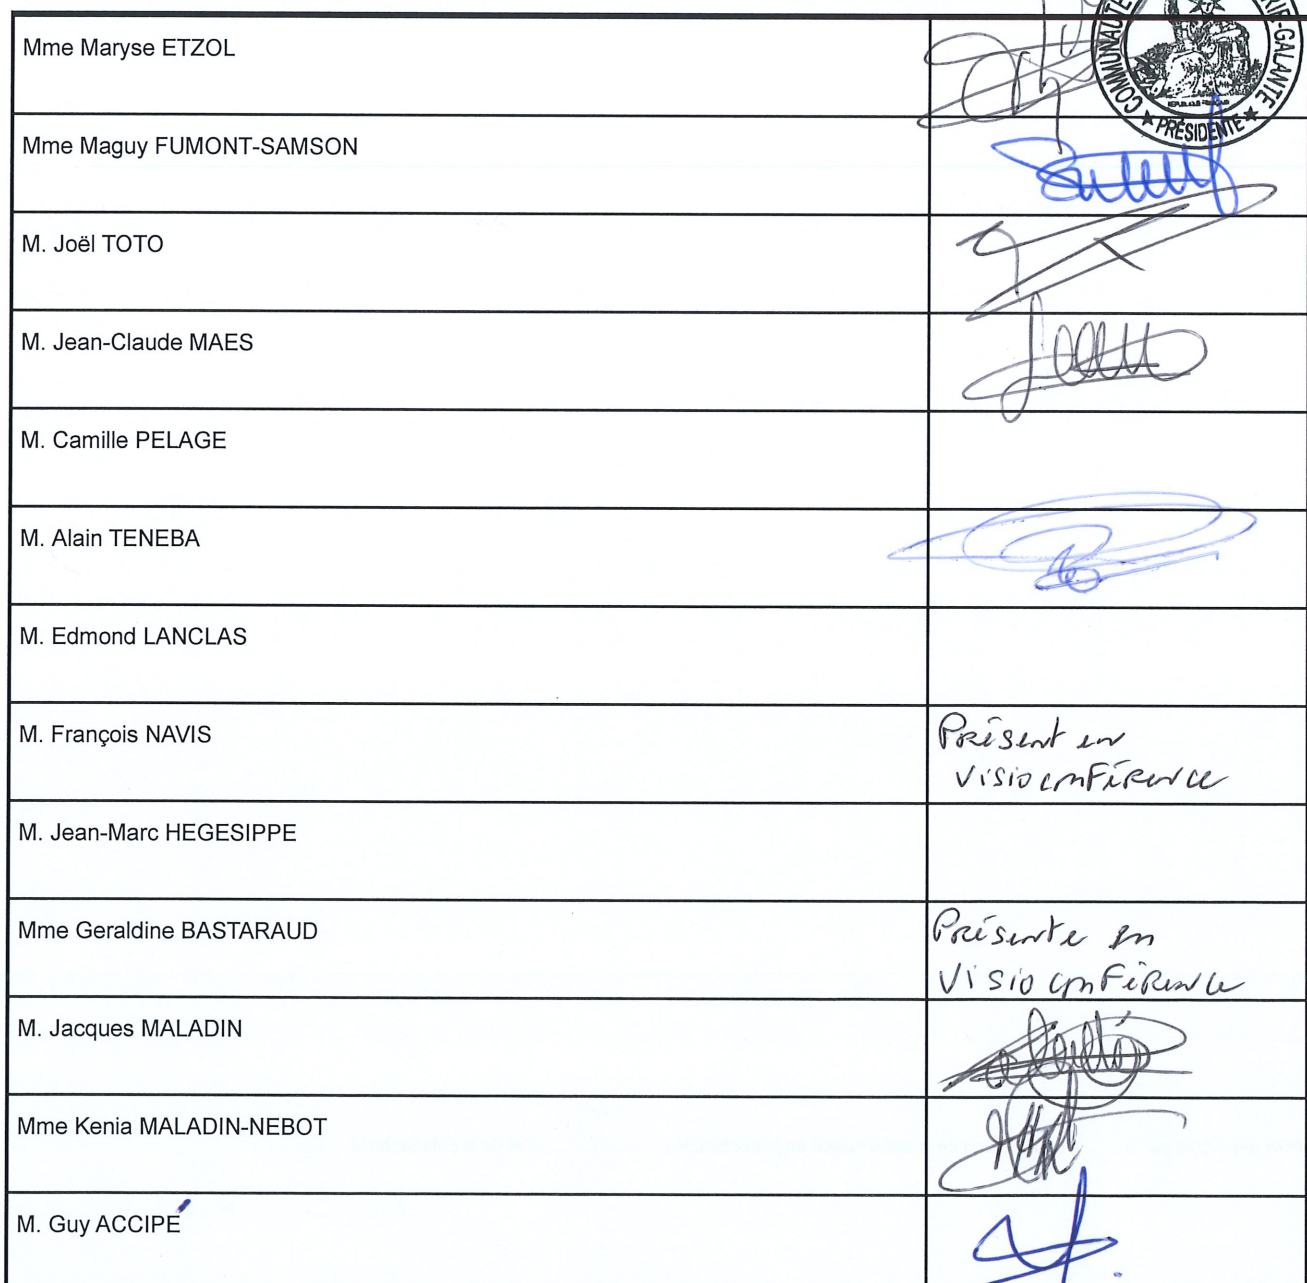 Mme Maryse ETZOL
COMMUNAUTÉ
RIE-GALANTE
★ PRÉSIDENTE ★
Mme Maguy FUMONT-SAMSON
M. Joël TOTO
M. Jean-Claude MAES
M. Camille PELAGE
M. Alain TENEBA
M. Edmond LANCLAS
M. François NAVIS
Présent en
visioconférence
M. Jean-Marc HEGESIPPE
Mme Geraldine BASTARAUD
Présente en
visioconférence
M. Jacques MALADIN
Mme Kenia MALADIN-NEBOT
M. Guy ACCIPÉ